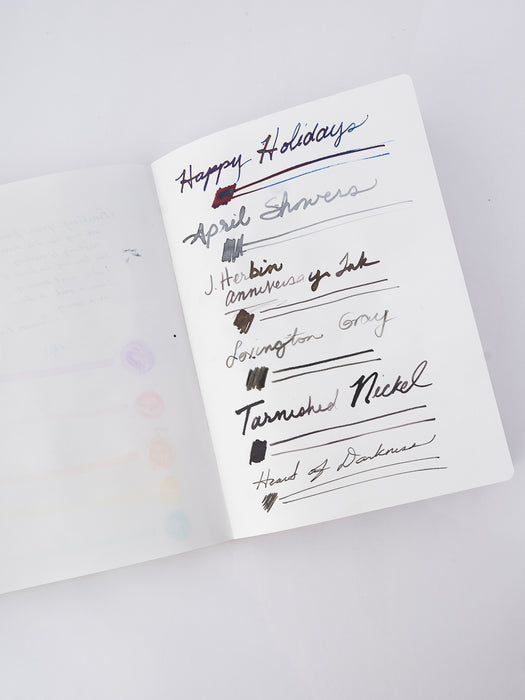 Happy Holidays
April Showers
J. Herbin
Anniversary Ink
Lexington Gray
Tarnished Nickel
Heart of Darkness